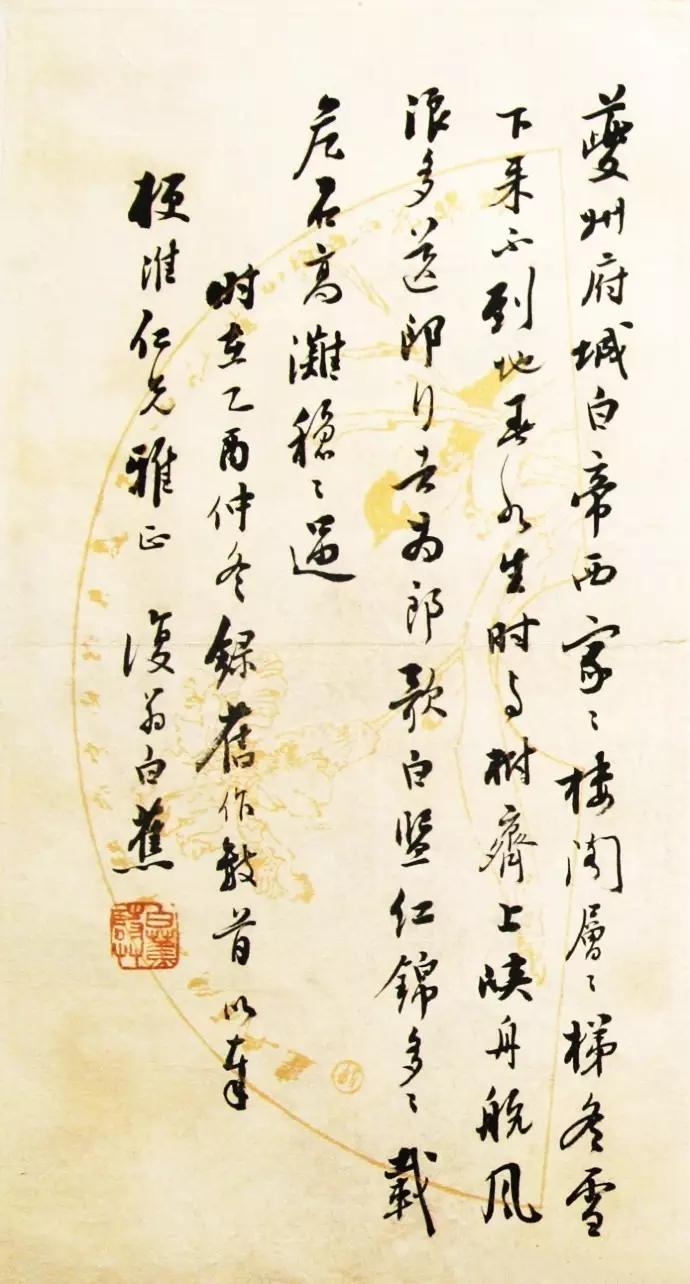 夔州府城白帝西家〻楼阁層〻梯冬雪
下来不到地春水生时与树齊上峡舟航风
浪多送郎行去为郎歌白盐红锦多〻载
危石高灘穏〻過
时在乙酉仲冬録舊作数首以奉
梗淮仁兄雅正 復翁白蕉